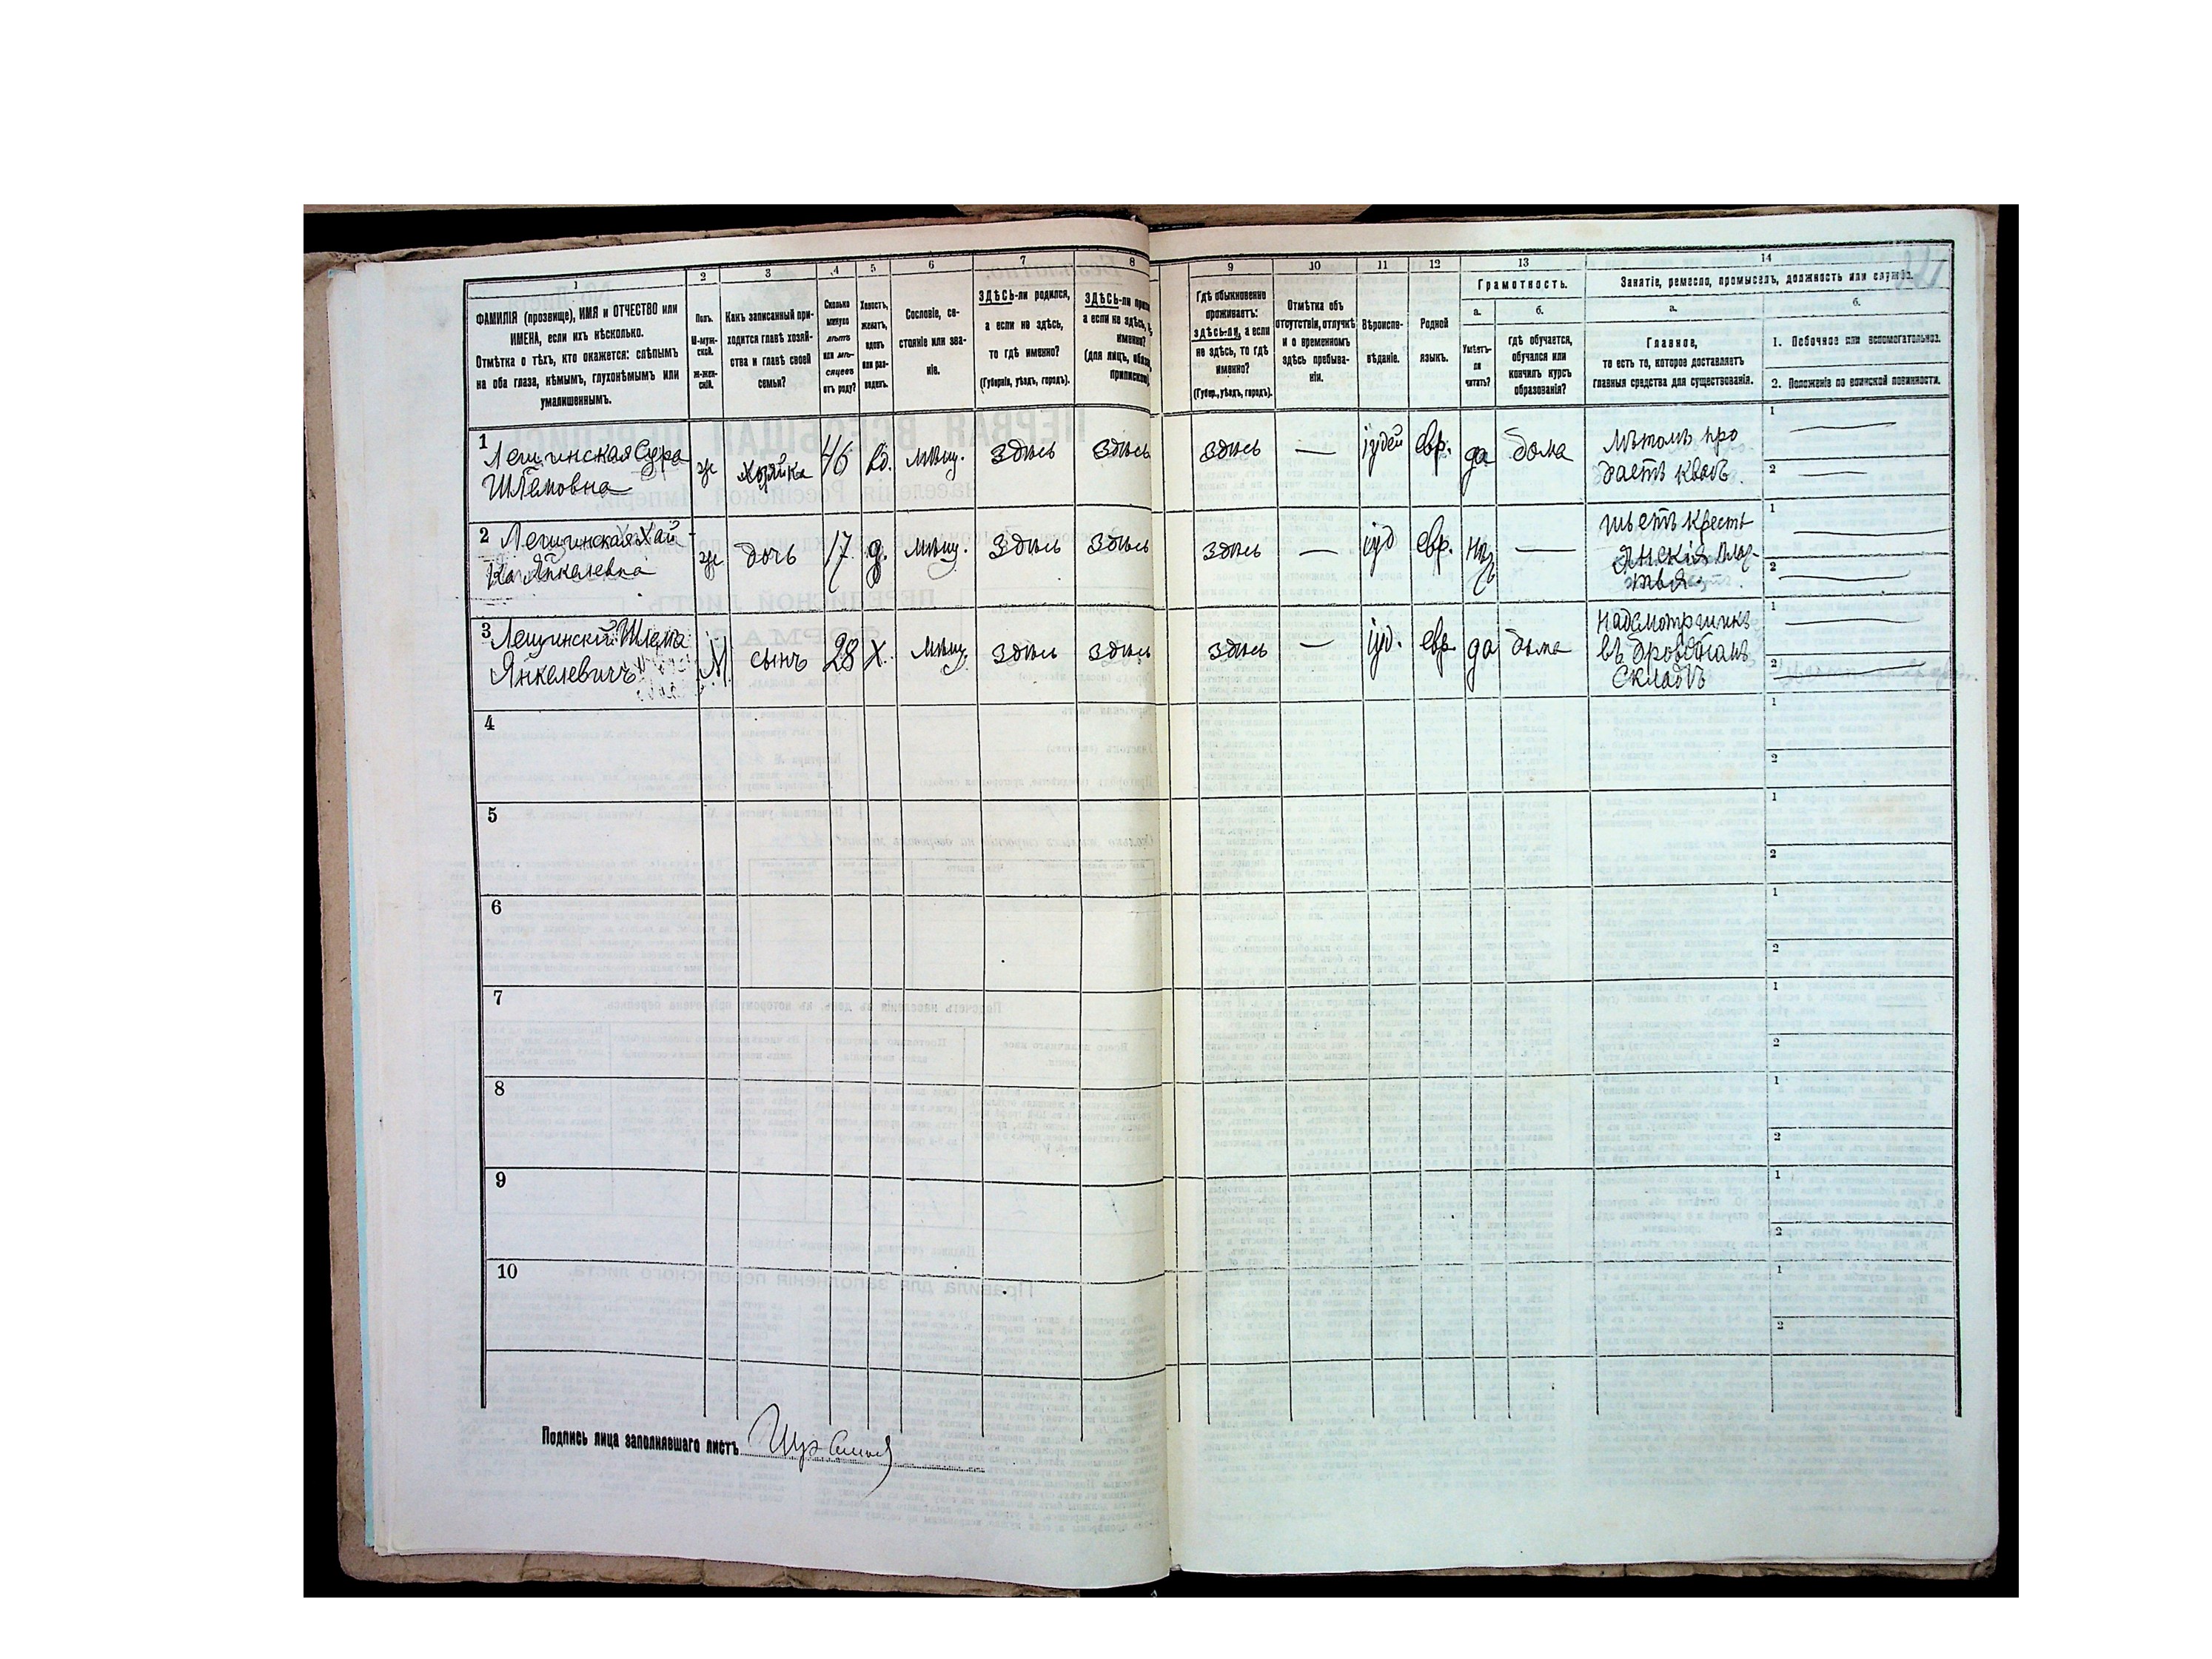 1 2 3 4 5 6 7 8 9 10 11 12 13 14
ФАМИЛІЯ (прозвище), ИМЯ и ОТЧЕСТВО или
ИМЕНА, если ихъ нѣсколько.
Отмѣтка о тѣхъ, кто окажется: слѣпымъ
на оба глаза, нѣмымъ, глухонѣмымъ или
умалишеннымъ.
Полъ.
М-муж-
ской.
Ж-жен-
скій.
Какъ записанный при-
ходится главѣ хозяй-
ства и главѣ своей
семьи?
Сколько
минуло
лѣтъ
или мѣ-
сяцевъ
отъ роду?
Холостъ,
женатъ,
вдовъ
или раз-
веденъ.
Сословіе, со-
стояніе или зва-
ніе.
ЗДѢСЬ-ли родился,
а если не здѣсь,
то гдѣ именно?
(Губернія, уѣздъ, городъ).
ЗДѢСЬ-ли
а если не здѣсь,
именно?
(для лицъ,
Гдѣ обыкновенно
проживаетъ:
здѣсь-ли, а если
не здѣсь, то гдѣ
именно?
(Губер., уѣздъ, городъ).
Отмѣтка объ
отсутствіи, отлучкѣ
и о временномъ
здѣсь пребыва-
ніи.
Вѣроиспо-
вѣданіе.
Родной
языкъ.
Грамотность.
а.
Умѣетъ-
ли
читать?
б.
Гдѣ обучается,
обучался или
кончилъ курсъ
образованія?
Занятіе, ремесло, промыселъ, должность или служба.
а.
Главное,
то есть то, которое доставляетъ
главныя средства для существованія.
б.
1. Побочное или вспомогательное.
2. Положеніе по воинской повинности.
1 Лещинская Сура
Шлемовна
ж хозяйка 46 вд. мѣщ. здѣсь здѣсь здѣсь — іудей евр. да дома
Лѣтомъ про
даетъ квасъ.
1
2
2 Лещинская Хай-
ка Янкелевна
ж дочь 17 д. мѣщ. здѣсь здѣсь здѣсь — іуд евр. —
шьетъ кресть
янскія
1
2
3 Лещинскій Шлема
Янкелевичъ
М. сынъ 28 х. мѣщ. здѣсь здѣсь здѣсь — іуд. евр да дома
Надсмотрщикъ
въ дровяномъ
складѣ
1
2
4
1
2
5
1
2
6
1
2
7
1
2
8
1
2
9
1
2
10
1
2
Подпись лица заполнявшаго листъ